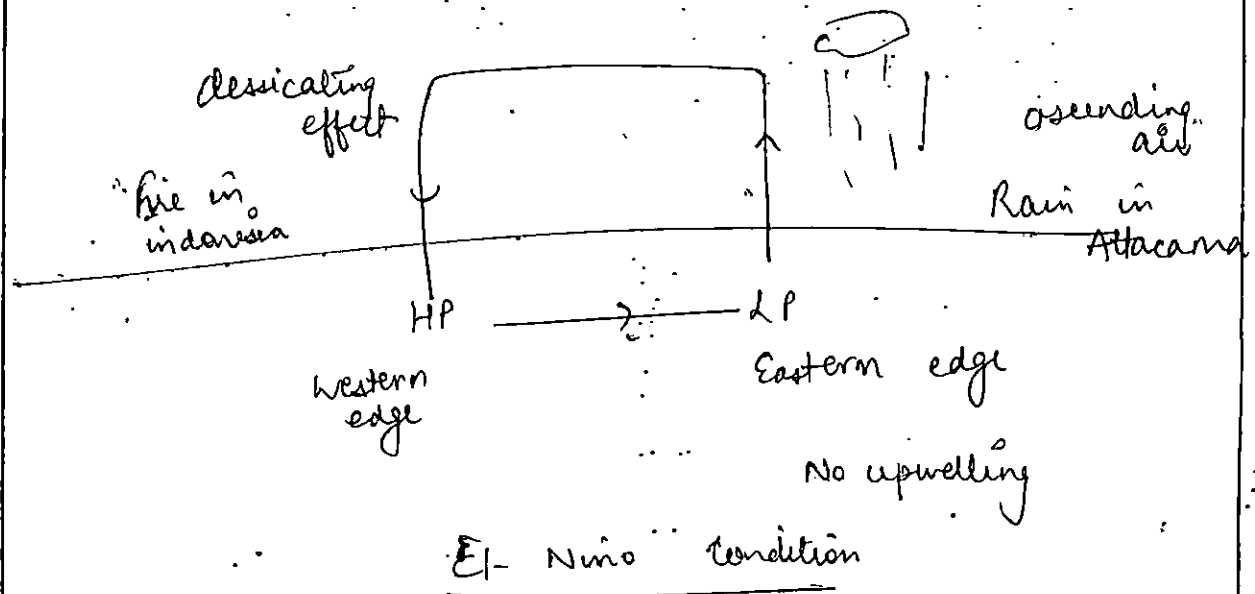 dessicating
effect
ascending
air
fire in
indonesia
Rain in
Attacama
HP
LP
Western
edge
Eastern edge
No upwelling
El-Nino Condition